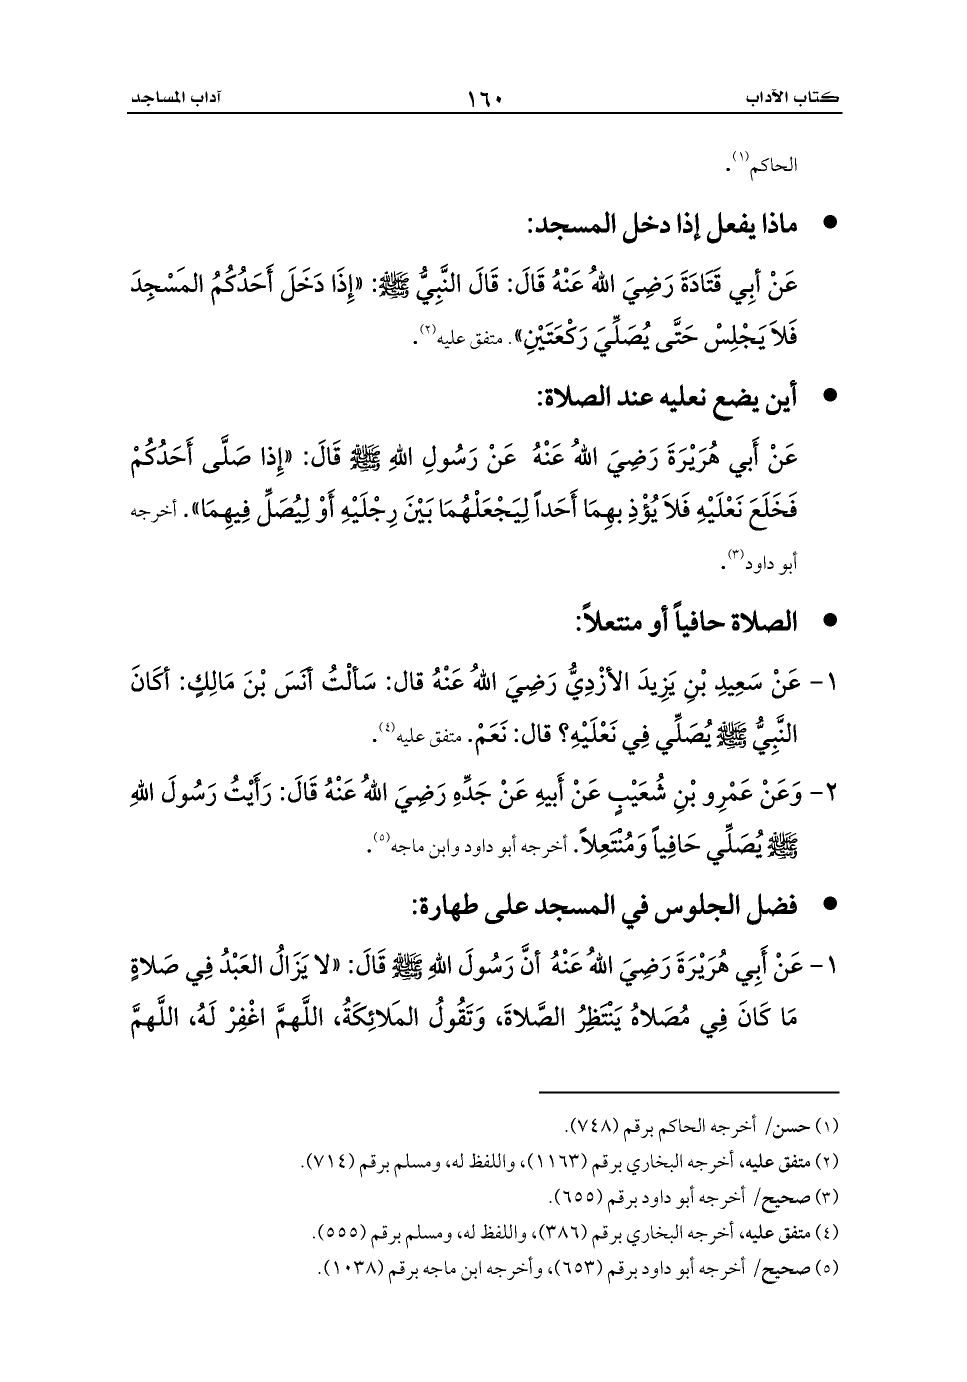 كتاب الآداب ١٦٠ آداب المساجد
الحاكم(١).
● ماذا يفعل إذا دخل المسجد:
عَنْ أبِي قَتَادَةَ رَضِيَ اللهُ عَنْهُ قَالَ: قَالَ النَّبِيُّ ﷺ: «إِذَا دَخَلَ أَحَدُكُمُ المَسْجِدَ
فَلاَ يَجْلِسْ حَتَّى يُصَلِّيَ رَكْعَتَيْنِ». متفق عليه(٢).
● أين يضع نعليه عند الصلاة:
عَنْ أَبي هُرَيْرَةَ رَضِيَ اللهُ عَنْهُ عَنْ رَسُولِ اللهِ ﷺ قَالَ: «إِذا صَلَّى أَحَدُكُمْ
فَخَلَعَ نَعْلَيْهِ فَلاَ يُؤْذِ بهِمَا أَحَداً لِيَجْعَلْهُمَا بَيْنَ رِجْلَيْهِ أَوْ لِيُصَلِّ فِيهِمَا». أخرجه
أبو داود(٣).
● الصلاة حافياً أو منتعلاً:
١- عَنْ سَعِيدِ بْنِ يَزِيدَ الأزْدِيُّ رَضِيَ اللهُ عَنْهُ قال: سَألْتُ أنَسَ بْنَ مَالِكٍ: أكَانَ
النَّبِيُّ ﷺ يُصَلِّي فِي نَعْلَيْهِ؟ قال: نَعَمْ. متفق عليه(٤).
٢- وَعَنْ عَمْرِو بْنِ شُعَيْبٍ عَنْ أَبيهِ عَنْ جَدِّهِ رَضِيَ اللهُ عَنْهُ قَالَ: رَأَيْتُ رَسُولَ اللهِ
ﷺ يُصَلِّي حَافِياً وَمُنْتَعِلاً. أخرجه أبو داود وابن ماجه(٥).
● فضل الجلوس في المسجد على طهارة:
١- عَنْ أَبِي هُرَيْرَةَ رَضِيَ اللهُ عَنْهُ أنَّ رَسُولَ اللهِ ﷺ قَالَ: «لا يَزَالُ العَبْدُ فِي صَلاةٍ
مَا كَانَ فِي مُصَلاهُ يَنْتَظِرُ الصَّلاةَ، وَتَقُولُ المَلائِكَةُ، اللَّهمَّ اغْفِرْ لَهُ، اللَّهمَّ
(١) حسن/ أخرجه الحاكم برقم (٧٤٨).
(٢) متفق عليه، أخرجه البخاري برقم (١١٦٣)، واللفظ له، ومسلم برقم (٧١٤).
(٣) صحيح/ أخرجه أبو داود برقم (٦٥٥).
(٤) متفق عليه، أخرجه البخاري برقم (٣٨٦)، واللفظ له، ومسلم برقم (٥٥٥).
(٥) صحيح/ أخرجه أبو داود برقم (٦٥٣)، وأخرجه ابن ماجه برقم (١٠٣٨).